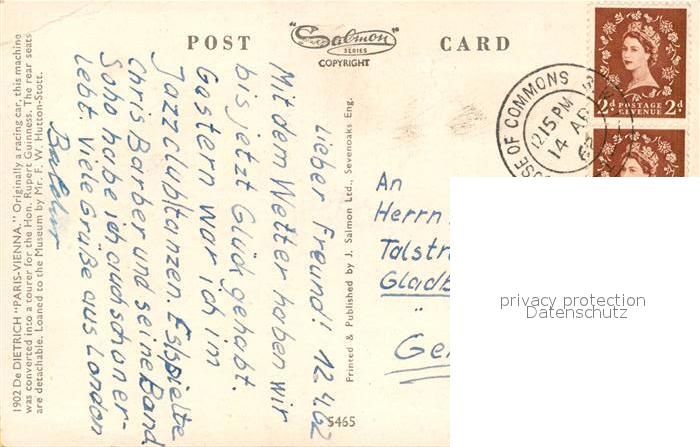 POST CARD
"Salmon"
SERIES
COPYRIGHT
1902 De DIETRICH "PARIS-VIENNA." Originally a racing car, this machine
was converted into a tourer for the Hon. Rupert Guinness. The rear seats
are detachable. Loaned to the Museum by Mr. F. W. Hutton-Stott.
Lieber Freund! 12.4.62
Mit dem Wetter haben wir
bis jetzt Glück gehabt.
Gestern war ich im
Jazzclub tanzen. Es spielte
Chris Barber und seine Band.
Soho habe ich auch schon er-
lebt. Viele Grüße aus London
Printed & Published by J. Salmon Ltd., Sevenoaks Eng.
5465
HOUSE OF COMMONS
12.15 PM
14 AP
62
2d POSTAGE 2d
REVENUE
An
Herrn
Talstr
Gladb
Ger
privacy protection
Datenschutz